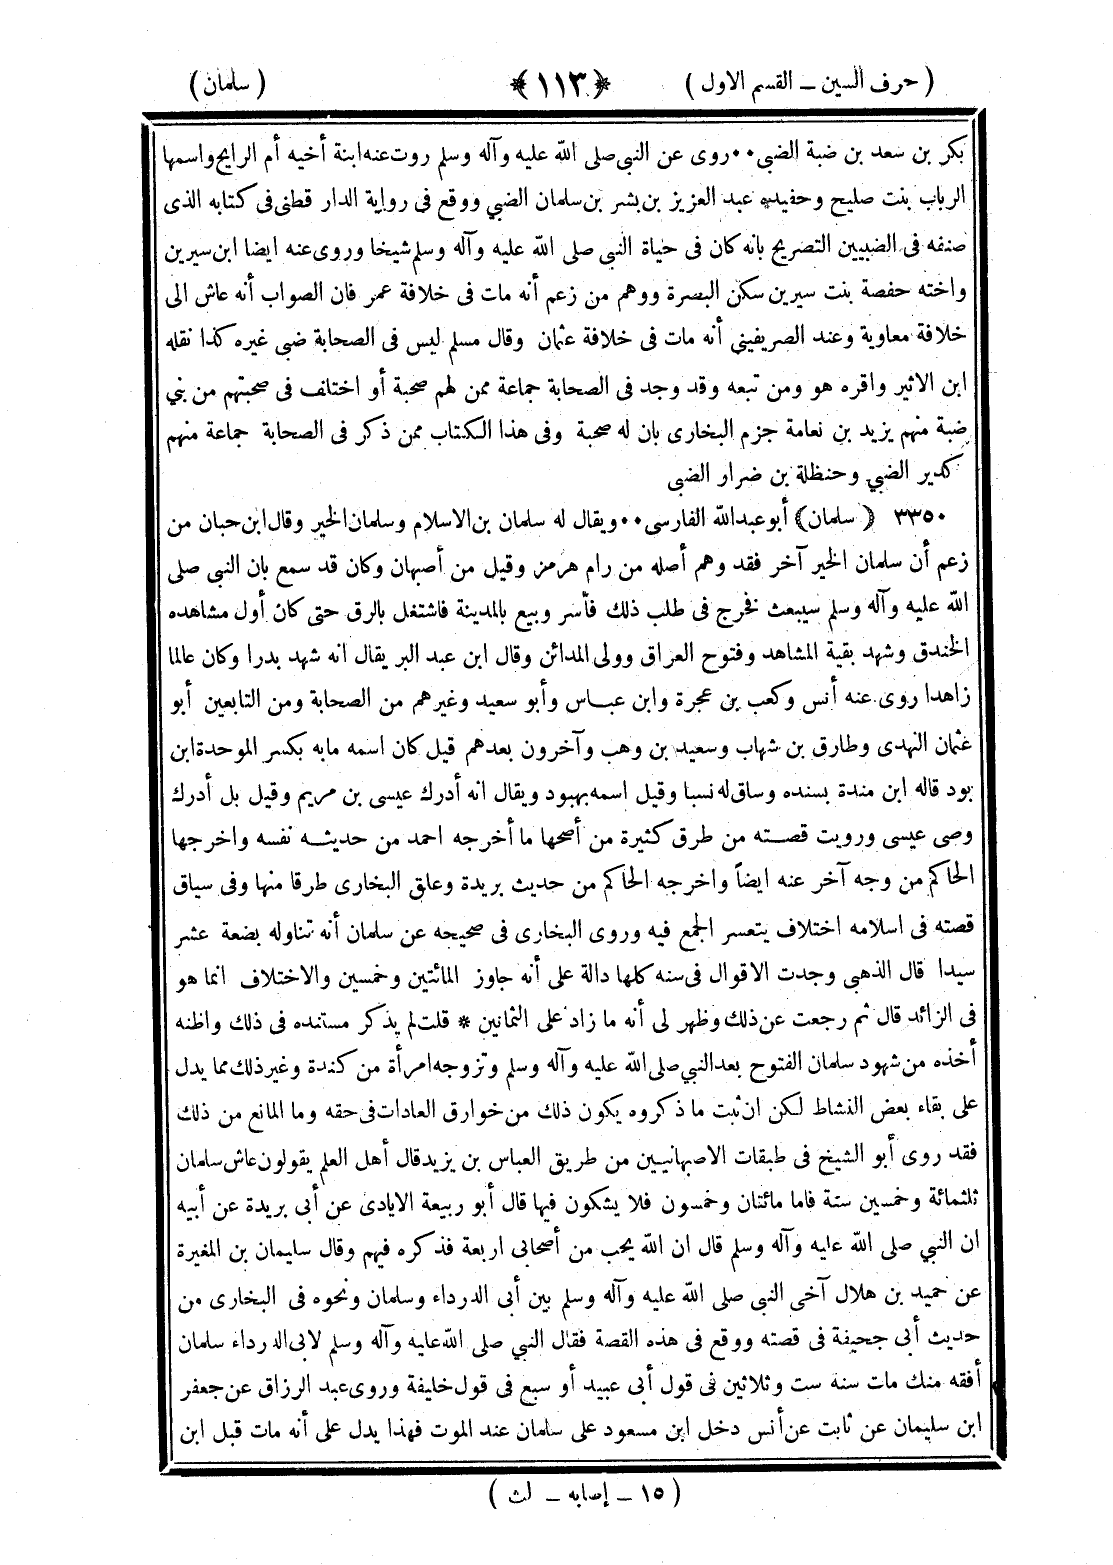 ( حرف السين – القسم الاول )
﴿ ١١٣ ﴾
( سلمان )
بكر بن سعد بن ضبة الضبي ٠٠ روى عن النبي صلى الله عليه وآله وسلم روت عنه ابنة أخيه أم الرايح واسمها
الرباب بنت صليح وحفيده عبد العزيز بن بشر بن سلمان الضبي ووقع فى رواية الدار قطنى فى كتابه الذى
صنفه فى الضبيين التصريح بانه كان فى حياة النبي صلى الله عليه وآله وسلم شيخا وروى عنه ايضا ابن سيرين
واخته حفصة بنت سيرين سكن البصرة ووهم من زعم أنه مات فى خلافة عمر فان الصواب أنه عاش الى
خلافة معاوية وعند الصريفيني أنه مات فى خلافة عثمان وقال مسلم ليس فى الصحابة ضبى غيره كذا نقله
ابن الاثير واقره هو ومن تبعه وقد وجد فى الصحابة جماعة ممن لهم صحبة أو اختلف فى صحبتهم من بني
ضبة منهم يزيد بن نعامة جزم البخارى بان له صحبة وفى هذا الكتاب ممن ذكر فى الصحابة جماعة منهم
كدير الضبي وحنظلة بن ضرار الضبى
٣٣٥٠ ﴿ سلمان ﴾ أبو عبد الله الفارسى ٠٠ ويقال له سلمان بن الاسلام وسلمان الخير وقال ابن حبان من
زعم أن سلمان الخير آخر فقد وهم أصله من رام هرمز وقيل من أصبهان وكان قد سمع بان النبي صلى
الله عليه وآله وسلم سيبعث فخرج فى طلب ذلك فأسر وبيع بالمدينة فاشتغل بالرق حتى كان أول مشاهده
الخندق وشهد بقية المشاهد وفتوح العراق وولى المدائن وقال ابن عبد البر يقال انه شهد بدرا وكان عالما
زاهدا روى عنه أنس وكعب بن عجرة وابن عباس وأبو سعيد وغيرهم من الصحابة ومن التابعين أبو
عثمان النهدى وطارق بن شهاب وسعيد بن وهب وآخرون بعدهم قيل كان اسمه مابه بكسر الموحدة ابن
بود قاله ابن مندة بسنده وساق له نسبا وقيل اسمه بهبود ويقال انه أدرك عيسى بن مريم وقيل بل أدرك
وصى عيسى ورويت قصته من طرق كثيرة من أصحها ما أخرجه احمد من حديثه نفسه واخرجها
الحاكم من وجه آخر عنه ايضاً واخرجه الحاكم من حديث بريدة وعلق البخارى طرقا منها وفى سياق
قصته فى اسلامه اختلاف يتعسر الجمع فيه وروى البخارى فى صحيحه عن سلمان أنه تناوله بضعة عشر
سيدا قال الذهبى وجدت الاقوال فى سنه كلها دالة على أنه جاوز المائتين وخمسين والاختلاف انما هو
فى الزائد قال ثم رجعت عن ذلك وظهر لى أنه ما زاد على الثمانين * قلت لم يذكر مستنده فى ذلك واظنه
أخذه من شهود سلمان الفتوح بعد النبي صلى الله عليه وآله وسلم وتزوجه امرأة من كندة وغير ذلك مما يدل
على بقاء بعض النشاط لكن ان ثبت ما ذكروه يكون ذلك من خوارق العادات فى حقه وما المانع من ذلك
فقد روى أبو الشيخ فى طبقات الاصبهانيين من طريق العباس بن يزيد قال أهل العلم يقولون عاش سلمان
ثلثمائة وخمسين سنة فاما مائتان وخمسون فلا يشكون فيها قال أبو ربيعة الايادى عن أبى بريدة عن أبيه
ان النبي صلى الله عليه وآله وسلم قال ان الله يحب من أصحابى اربعة فذكره فيهم وقال سليمان بن المغيرة
عن حميد بن هلال آخى النبي صلى الله عليه وآله وسلم بين أبى الدرداء وسلمان ونحوه فى البخارى من
حديث أبى جحيفة فى قصته ووقع فى هذه القصة فقال النبي صلى الله عليه وآله وسلم لابى الدرداء سلمان
أفقه منك مات سنة ست وثلاثين فى قول أبى عبيد أو سبع فى قول خليفة وروى عبد الرزاق عن جعفر
ابن سليمان عن ثابت عن أنس دخل ابن مسعود على سلمان عند الموت فهذا يدل على أنه مات قبل ابن
( ١٥ – إصابه – لث )